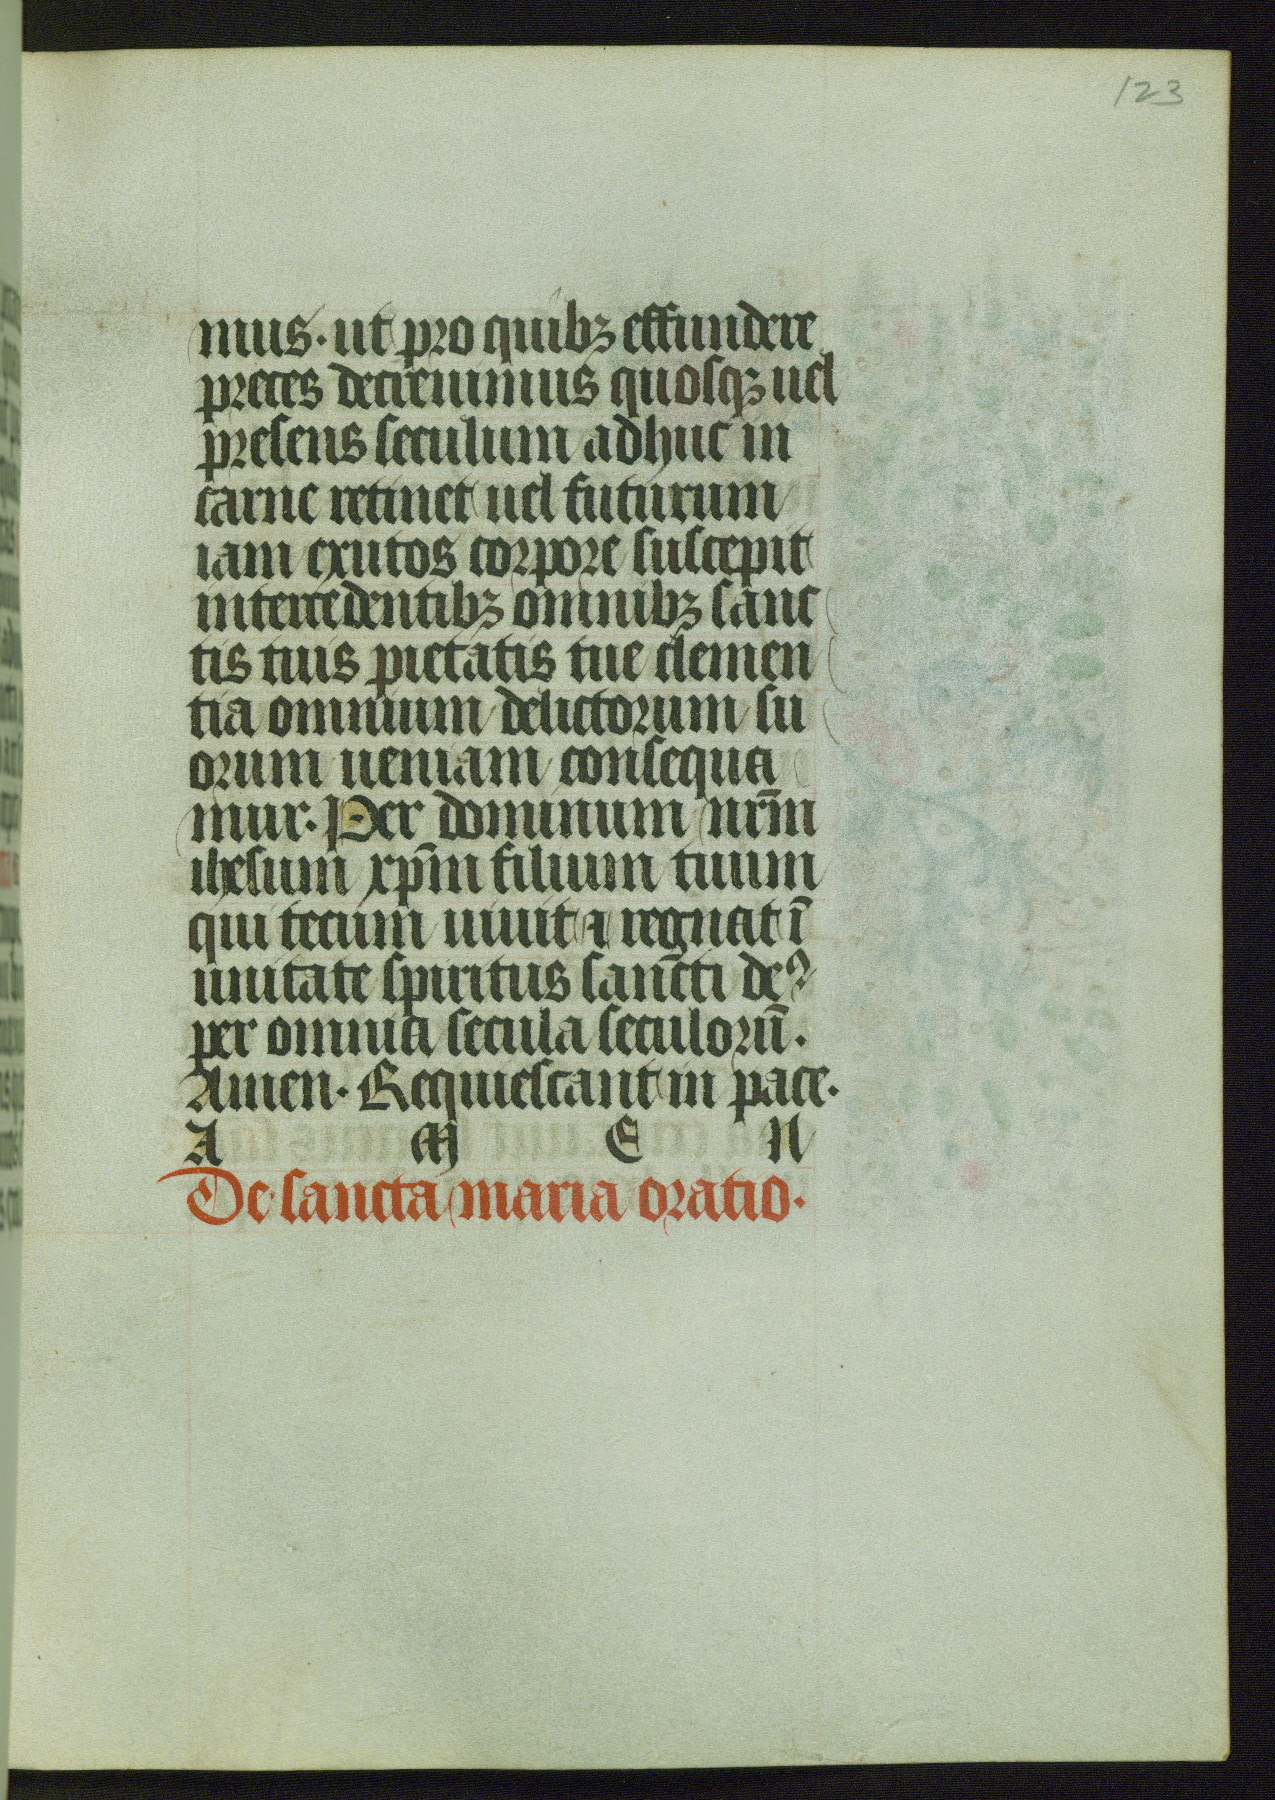 123
mus. ut pro quibꝫ effundere
preces decreuimus quosqꝫ uel
presens seculum adhuc in
carne retinet uel futurum
iam exutos corpore suscepit
intercedentibꝫ omnibꝫ sanc
tis tuis pietatis tue clemen
tia omnium delictorum su
orum ueniam consequa
mur. Per dominum nr̄m
ihesum xp̄m filium tuum
qui tecum uiuit ⁊ regnat ī
unitate spiritus san̄cti deꝰ
per omnia secula seculorū.
Amen. Requiescant in pace.
A M E N
De sancta maria oratio.